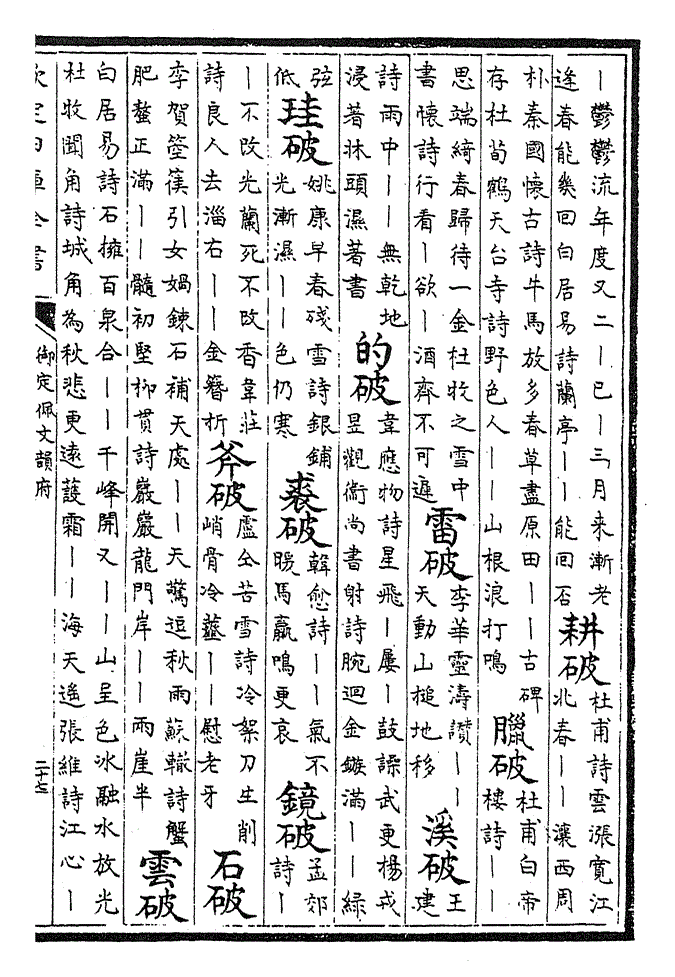 ｜鬱鬱流年度又二｜巳｜三月来漸老
逢春能幾回白居易詩蘭亭｜｜能回否
耕破
杜甫詩雲漲寬江
北春｜｜瀼西周
朴秦國懷古詩牛馬放多春草盡原田｜｜古碑
存杜荀鶴天台寺詩野色人｜｜山根浪打鳴
臘破
杜甫白帝
樓詩｜｜
思端綺春歸待一金杜牧之雪中
書懷詩行看｜欲｜酒齊不可遲
雷破
李華靈濤讚｜｜
天動山槌地移
溪破
王
建
詩雨中｜｜無乾地
浸著牀頭濕著書
的破
韋應物詩星飛｜屢｜鼓譟武更楊戎
昱觀衙尚書射詩腕迴金鏃滿｜｜緑
弦
低
珪破
姚康早春殘雪詩銀鋪
光漸濕｜｜色仍寒
裘破
韓愈詩｜｜氣不
暖馬羸鳴更哀
鏡破
孟郊
詩｜
｜不改光蘭死不改香韋莊
詩良人去淄右｜｜金簪折
斧破
盧仝苦雪詩冷絮刀生削
峭骨冷虀｜｜慰老牙
石破
李賀箜篌引女媧鍊石補天處｜｜天驚逗秋雨蘇轍詩蟹
肥螯正滿｜｜髓初堅柳貫詩巖巖龍門岸｜｜兩崖半
雲破
白居易詩石擁百泉合｜｜千峰開又｜｜山呈色冰融水放光
杜牧聞角詩城角為秋悲更遠護霜｜｜海天遙張維詩江心｜
欽定四庫全書
御定佩文韻府
二十七